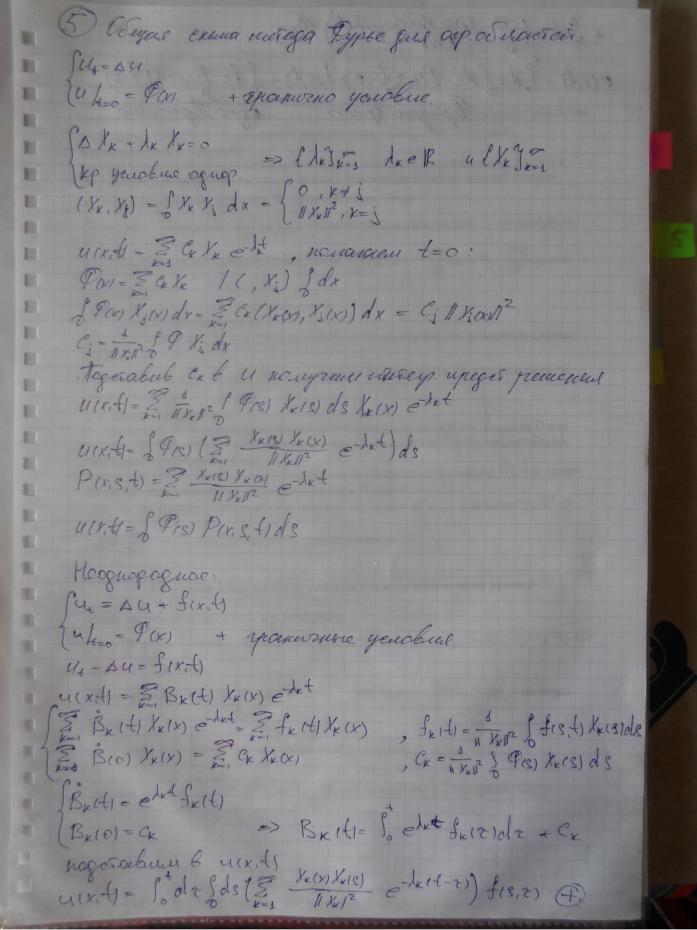 ⑤ Общая схема метода Фурье для огр. областей.
{ u_t = Δu
u|_{t=0} = φ(x) + гранично условие.
{ ΔX_k + λ_k X_k = 0
кр условия однор. => {λ_k}_{k=1}^∞ λ_k ∈ ℝ и {X_k}_{k=1}^∞
(X_k, X_j) = ∫_D X_k X_j dx = { 0, k≠j
||X_k||², k=j
u(x,t) = Σ_{k=1}^∞ C_k X_k e^{-λ_k t}, полагаем t=0:
φ(x) = Σ_{k=1}^∞ C_k X_k |( , X_j) ∫_D dx
∫_D φ(x) X_j(x) dx = Σ_{k=1}^∞ C_k (X_k(x), X_j(x)) dx = C_j ||X_j(x)||²
C_j = 1/||X_j||² ∫_D φ X_j dx
Подставив C_k в u получим интегр. предст. решения
u(x,t) = Σ_{k=1}^∞ 1/||X_k||² ∫_D φ(s) X_k(s) ds X_k(x) e^{-λ_k t}
u(x,t) = ∫_D φ(s) (Σ_{k=1}^∞ X_k(s) X_k(x)/||X_k||² e^{-λ_k t}) ds
P(x,s,t) = Σ_{k=1}^∞ X_k(s) X_k(x)/||X_k||² e^{-λ_k t}
u(x,t) = ∫_D φ(s) P(x,s,t) ds
Неоднородное:
{ u_t = Δu + f(x,t)
u|_{t=0} = φ(x) + граничные условия.
u_t - Δu = f(x,t)
u(x,t) = Σ_{k=1}^∞ B_k(t) X_k(x) e^{-λ_k t}
{ Σ_{k=1}^∞ Ḃ_k(t) X_k(x) e^{-λ_k t} = Σ_{k=1}^∞ f_k(t) X_k(x) , f_k(t) = 1/||X_k||² ∫_D f(s,t) X_k(s) ds
Σ_{k=1}^∞ Ḃ(0) X_k(x) = Σ_{k=1}^∞ C_k X_k(x) , C_k = 1/||X_k||² ∫_D φ(s) X_k(s) ds
{ Ḃ_k(t) = e^{λ_k t} f_k(t)
B_k(0) = C_k => B_k(t) = ∫_0^t e^{λ_k τ} f_k(τ) dτ + C_k
подставим в u(x,t)
u(x,t) = ∫_0^t dτ ∫_D ds (Σ_{k=1}^∞ X_k(x) X_k(s)/||X_k||² e^{-λ_k(t-τ)}) f(s,τ) ⊕